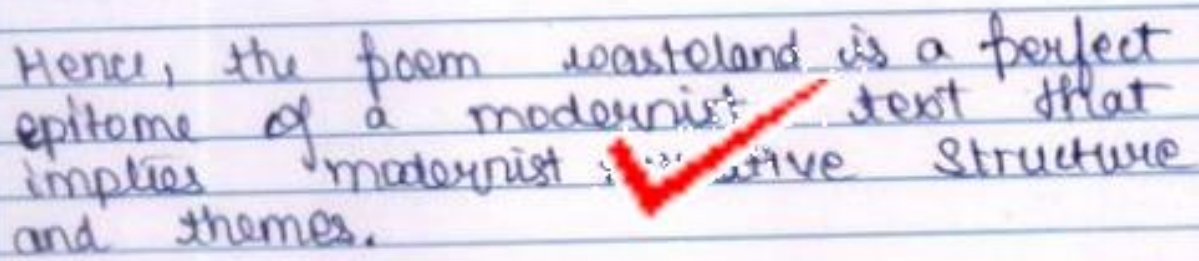 Hence, the poem wasteland is a perfect
epitome of a modernist text that
implies modernist structure
and themes.